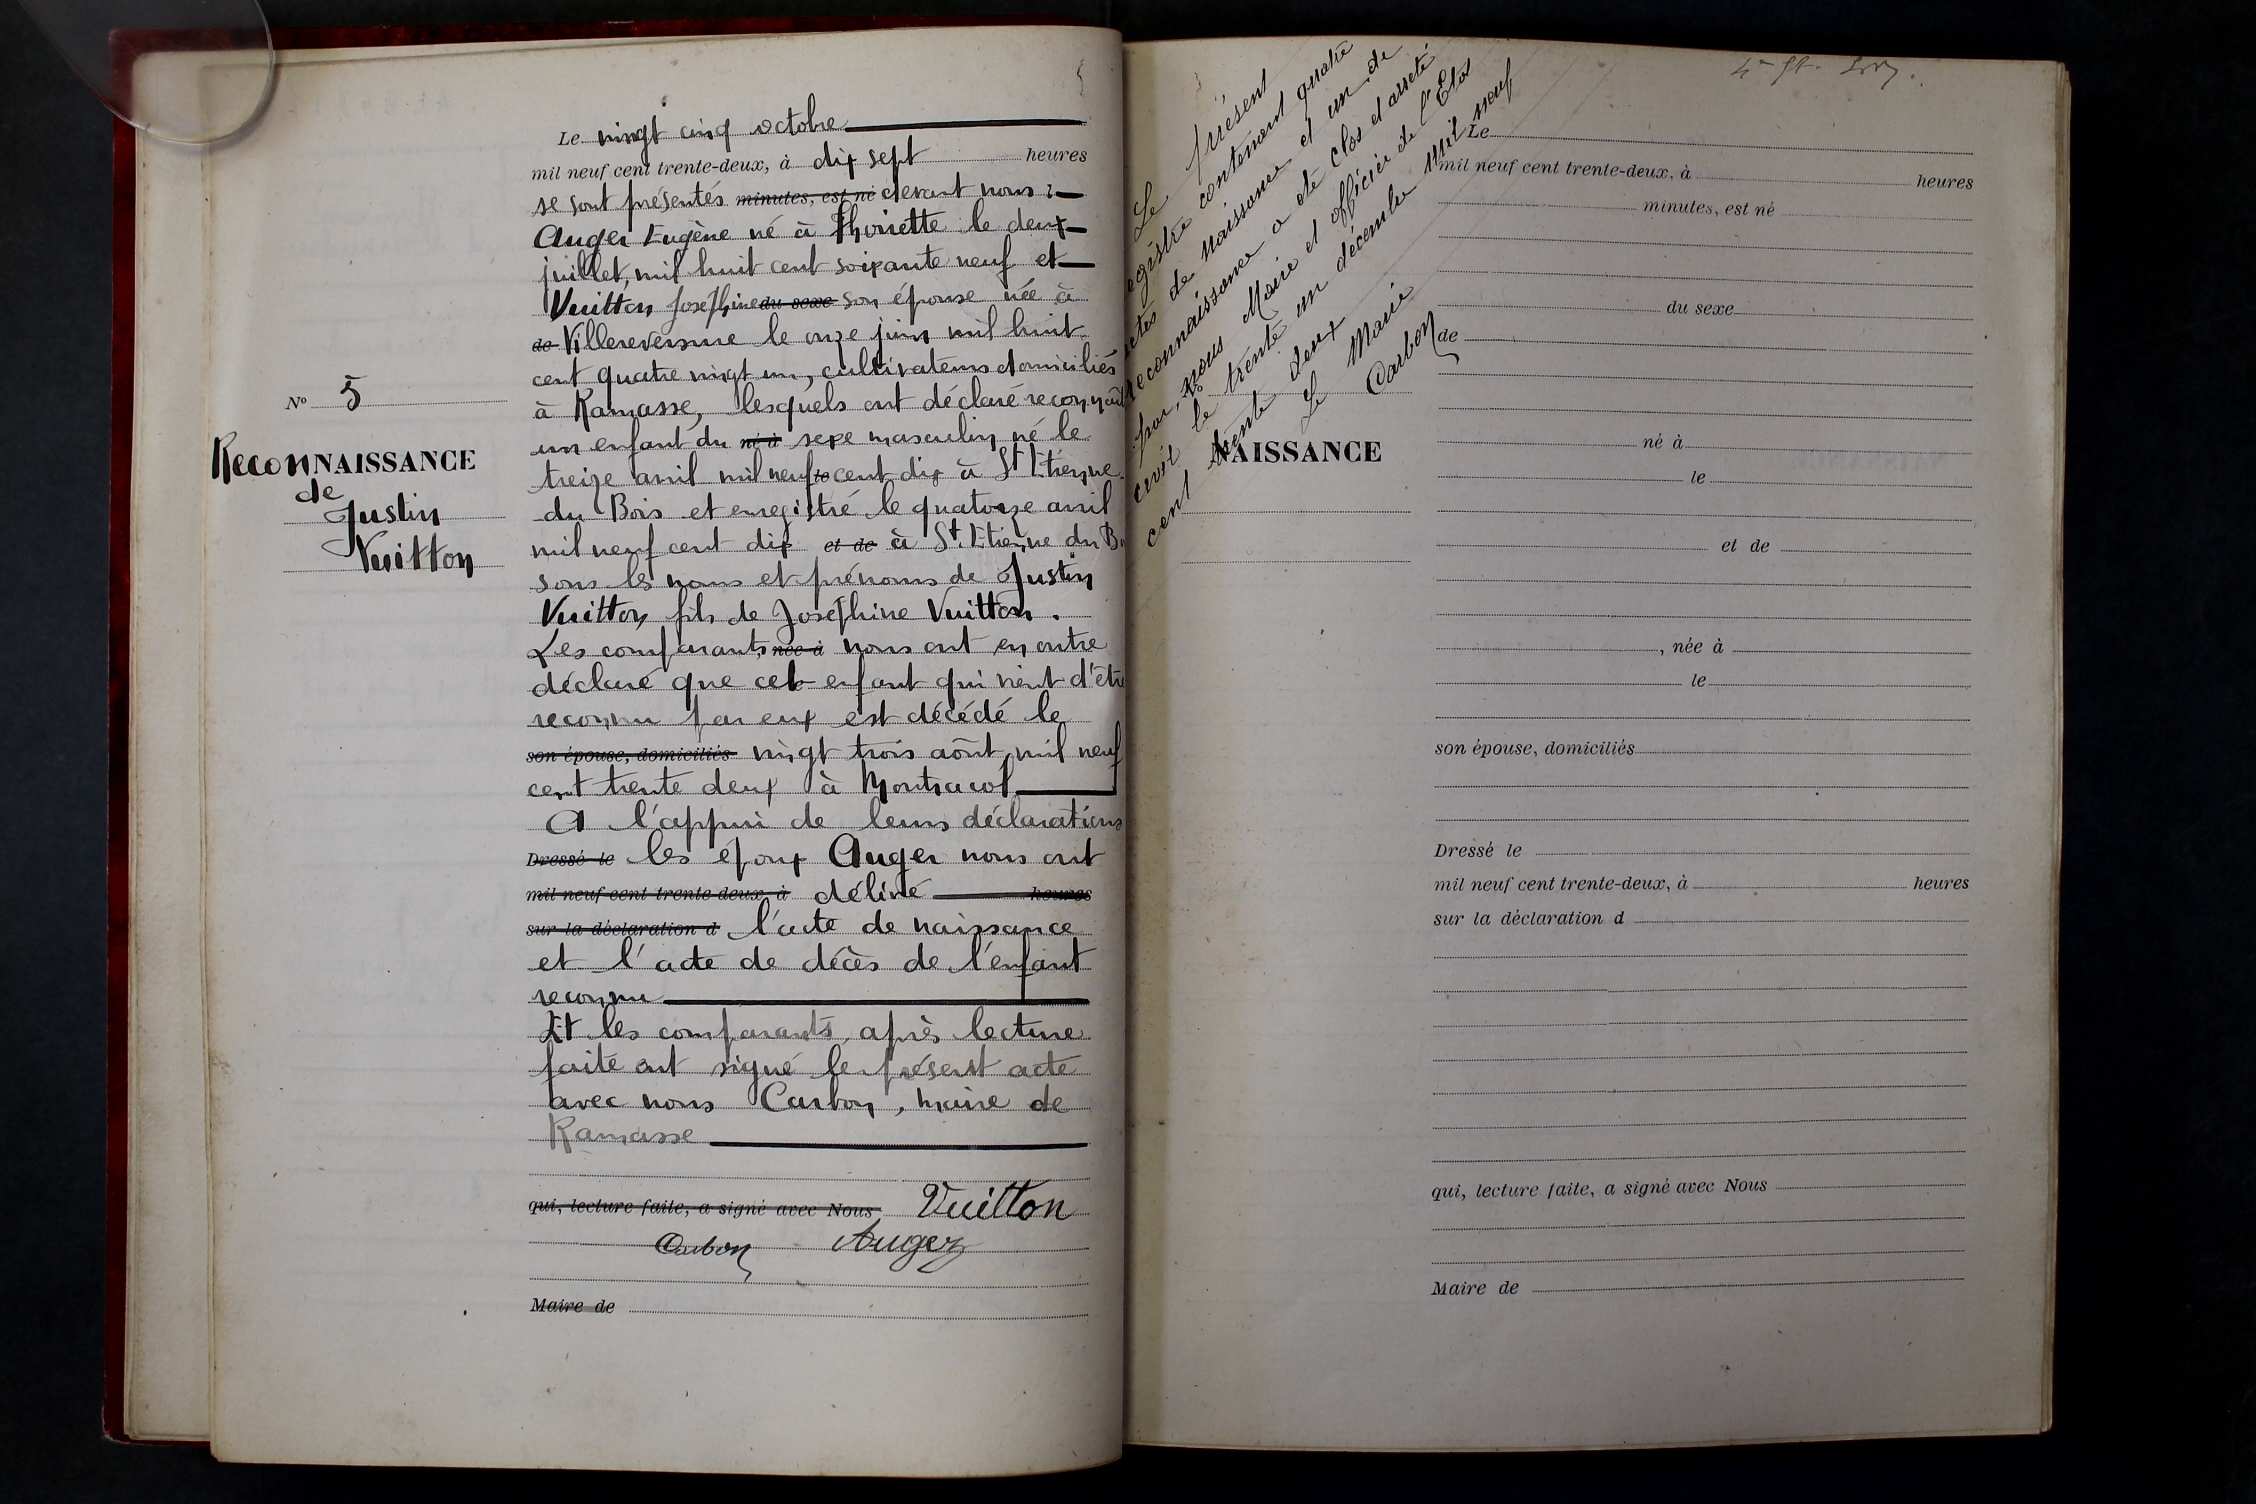 Le vingt cinq octobre
mil neuf cent trente-deux, à dix sept heures
se sont présentés minutes, est né devant nous :
Auger Eugène né à Thoirette le deux
juillet, mil huit cent soixante neuf et
Vuitton Joséphine du sexe son épouse née à
de Villereversure le onze juin mil huit
cent quatre vingt un, cultivateurs domiciliés
à Ramasse, lesquels ont déclaré reconnaît
un enfant du né à sexe masculin né le
treize avril mil neuf le cent dix à St Etienne
du Bois et enregistré le quatorze avril
mil neuf cent dix et de à St. Etienne du B
sous les noms et prénoms de Justin
Vuitton fils de Joséphine Vuitton.
Les comparants, née à nous ont en outre
déclaré que cet enfant qui vient d'être
reconnu par eux est décédé le
son épouse, domiciliés vingt trois août mil neuf
cent trente deux à Montracol
A l'appui de leurs déclarations
Dressé le les époux Auger nous ont
mil neuf cent trente-deux, à délivré heures
sur la déclaration d l'acte de naissance
et l'acte de décès de l'enfant
reconnu
Et les comparants, après lecture
faite ont signé le présent acte
avec nous Carbon, maire de
Ramasse
qui, lecture faite, a signé avec Nous Vuitton
Carbon Auger
Maire de
No 5
ReconNAISSANCE
de
Justin
Vuitton
Le présent
egistre contenant quatre
ctes de naissance et un de
reconnaissance a été clos et arrêté
par, nous Maire et officier de l'Etat
civil le trente un décembre mil neuf
cent trente deux
Le Maire
Carbon
NAISSANCE
Le
mil neuf cent trente-deux, à heures
minutes, est né
du sexe
de
né à
le
et de
, née à
le
son épouse, domiciliés
Dressé le
mil neuf cent trente-deux, à heures
sur la déclaration d
qui, lecture faite, a signé avec Nous
Maire de